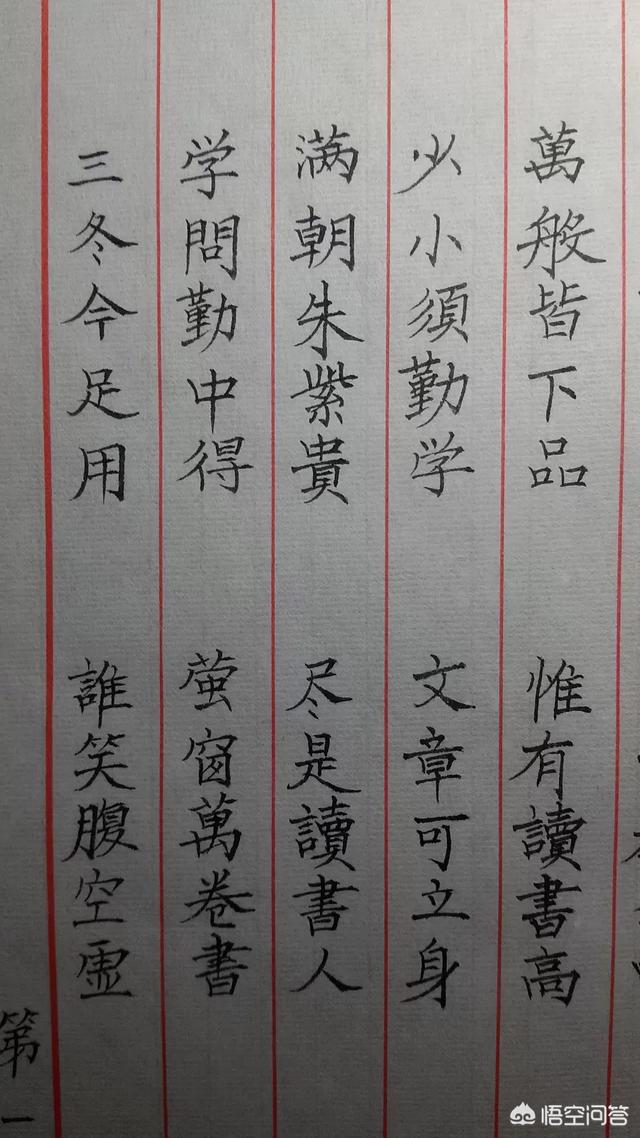 萬般皆下品 惟有讀書高
少小須勤学 文章可立身
满朝朱紫貴 尽是讀書人
学問勤中得 萤窗萬卷書
三冬今足用 誰笑腹空虚
第一
悟空问答